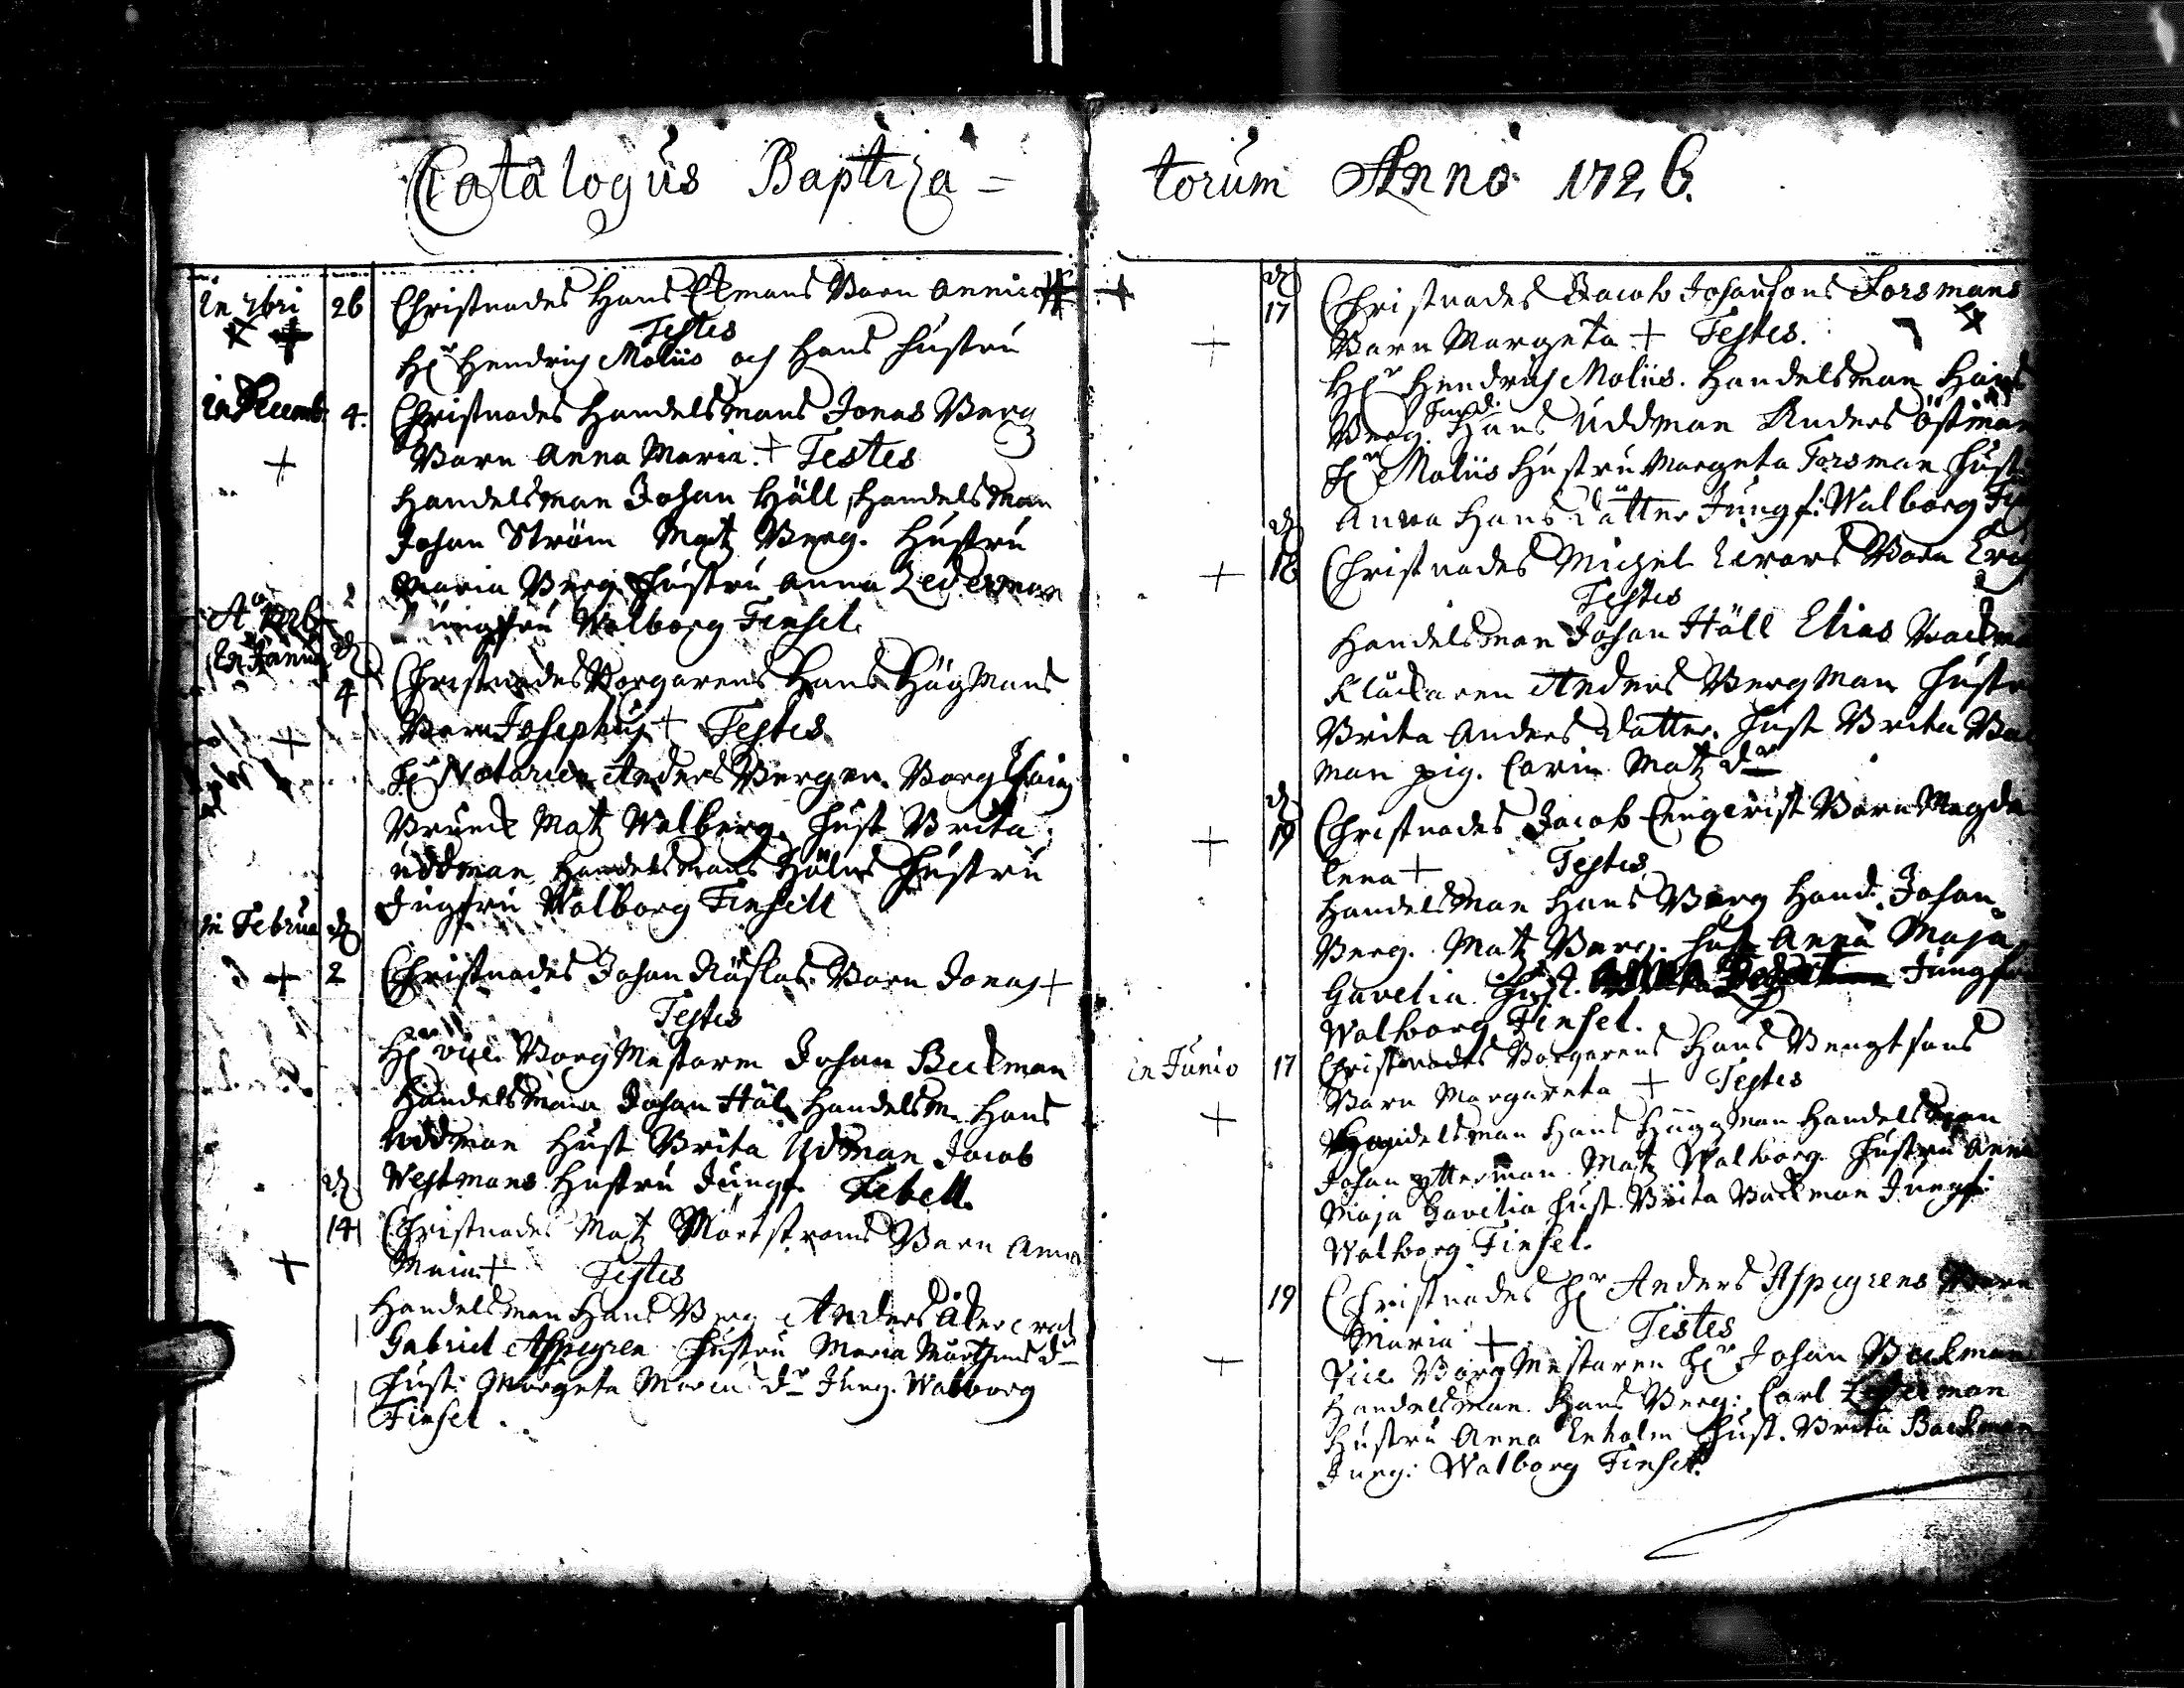 Catalogus Baptiza=
In 9bri 26 Christnades Hans Ekmans Barn Annica
Testes
H:r Hendrich Moliis och Hans Hustru
in Decemb. 4. Christnades Handelsmans Jonas Berg
Barn Anna Maria. + Testes
Handelsman Johan Häll, Handelsman
Johan Ström Matz Berg. Hustru
Maria Berg Hustru Anna Lederman
Jungfru Walborg Finsel.
Ao 1726
In Janua d 4 Christnades Borgarens Hans Häg Mans
Barn Josephus + Testes
H:r Notarien Anders Bergen. Borg
Matz Walberg. Hust Brita
Uddman Handelsmans Häls Hustru
Jugfru Walborg Finsell
in Februa d
2 Christnades Johan Barn Jonas +
Testes
H:r vice BorgMestaren Johan Beckman
Handelsman Johan Häl Handelsm. Hans
Uddman Hust Brita Udman Jacob
d Westmans Hustru Jungf. Febell.
14 Christnades Matz Barn Anna
Maria + Testes
Handelsman Hans Berg Anders
Gabriel Aspegren Hustru Maria d:r
Hust: Margeta d:r Jung. Walborg
Finsel.
torum Anno 1726.
d
17 Christnades Jacob Johansons Forsmans
Barn Margeta + Testes.
H:r Hendrich Moliis. Handelsman Hans
Berg. Hand. Hans Uddman Anders Östman
H:r Moliis Hustru Margeta Forsman Hust
d Anna Hans dätter Jungf: Walborg
18 Christnades Michel Barn
Testes
Handelsman Johan Häll Elias Backm
Klåckaren Anders Bergman Hustr
Brita Anders datter. Hust Brita
man pig. Carin Matz d:r
d
19 Christnades Jacob Barn Magda
lena + Testes
Handelsman Hans Berg Hand. Johan
Berg. Matz Berg. Hust Anna Maja
Gavelia Hust. Jungfru
Walborg Finsel.
in Junio 17 Christnades Borgarens Hans Bengtsons
Barn Margareta + Testes
Handelsman Hans Häggman Handelsman
Johan Ytterman. Matz Walborg. Hustru Anna
Maja Gavelia Hust. Brita Backman Jungf:
Walborg Finsel.
19 Christnades H:r Anders Aspegrens Barn
Maria + Testes
Vice BorgMestaren H:r Johan Beckman
Handelsman. Hans Berg: Carl Lederman
Hustru Anna Enholm Hust. Brita Backman
Jung: Walborg Finsel.